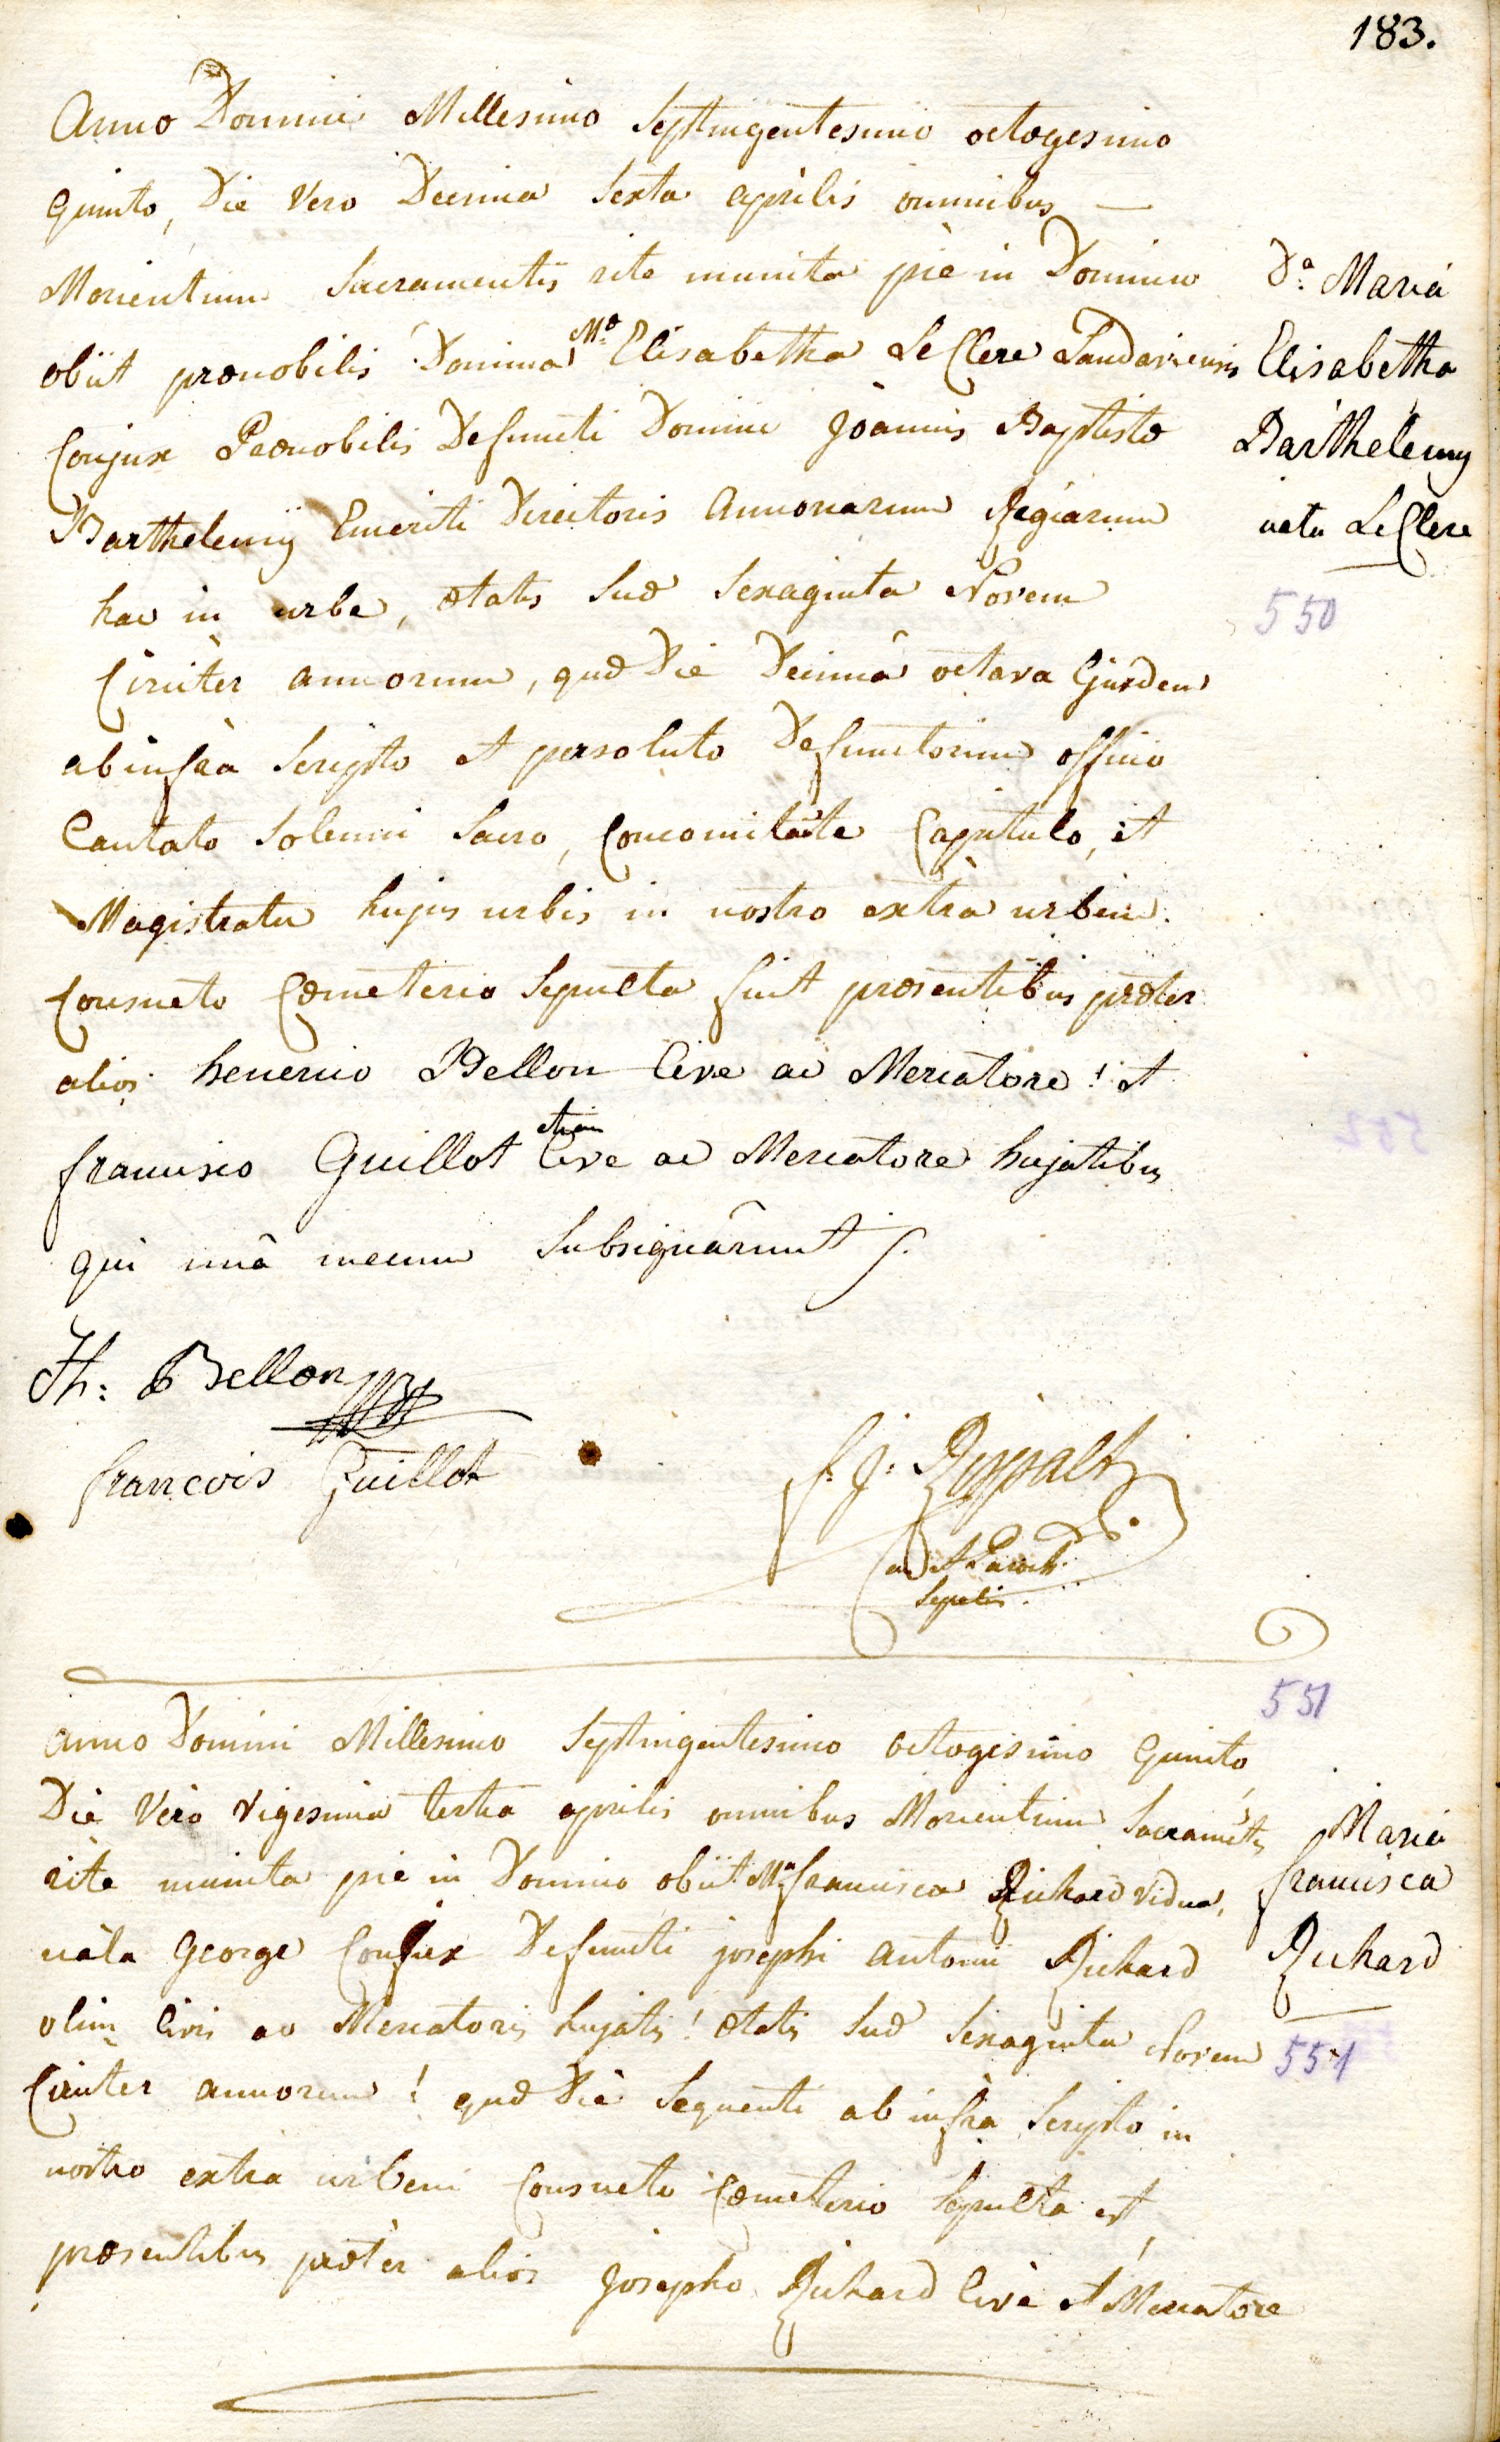 183.
Anno Domini Millesimo Septingentesimo octogesimo
quinto, Die vero Decima Sexta aprilis omnibus —
Morientium Sacramentis rite munita piè in Domino
obiit prænobilis Domina Mª Elisabetha Le Clerc Landaviensis
Conjux Prænobilis Defuncti Domini Joannis Baptistæ
Barthelemÿ Emeriti Directoris Annonarum Regiarum
hac in urbe, ætatis Suæ Sexaginta Novem
Circiter annorum, quæ Die Decimâ octava Ejusdem
ab infra Scripto et persoluto Defunctorum officio
Cantato Solemni Sacro, Concomitāte Capitulo, et
Magistratu hujus urbis in nostro extrà urbem
Consueto Cœmeterio Sepulta fuit præsentibus præter
alios henerico Bellon Cive ac Mercatore! et
francisco Guillot etiam Cive ac Mercatore hujatibus
qui unâ mecum Subsignârunt /.
Dª Maria
Elisabetha
Barthelemy
nata Le Clerc
550
Th: Bellon
francois Guillot
f. J: Rippalt
Can. et Paroch.
551
Anno Domini Millesimo Septingentesimo octogesimo Quinto,
Die Vero vigesima tertia aprilis omnibus Morientium Sacramētis
rite munita piè in Domino obiit Mª francisca Richard vidua,
nata George Conjux Defuncti josephi antonii Richard
olim Civis ac Mercatoris hujatis! ætatis Suæ Sexaginta Novem
Circiter annorum! quæ Die Sequenti ab infra Scripto in
nostro extra urbem Consueto Cœmeterio Sepulta est,
præsentibus præter alios Josepho Richard Cive et Mercatore
Maria
francisca
Richard
551